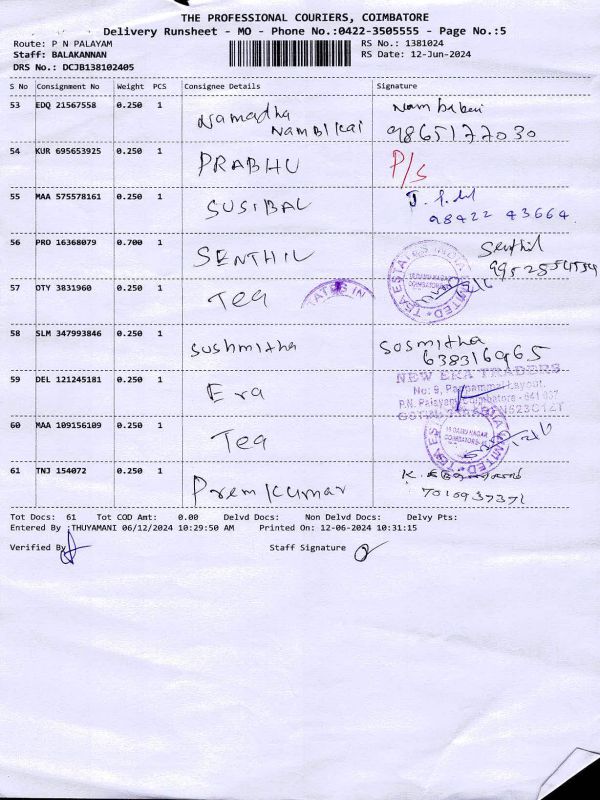 THE PROFESSIONAL COURIERS, COIMBATORE
Delivery Runsheet - MO - Phone No.:0422-3505555 - Page No.:5
Route: P N PALAYAM
Staff: BALAKANNAN
DRS No.: DCJB138102405
RS No.: 1381024
RS Date: 12-Jun-2024
S No Consignment No Weight PCS Consignee Details Signature
53 EDQ 21567558 0.250 1 Namadha
NAMBIKai
9865177030
54 KUR 695653925 0.250 1 PRABHU P/s
55 MAA 575578161 0.250 1 SUSIBAL
98422 43664
56 PRO 16368079 0.700 1 SENTHIL Senthil
57 OTY 3831960 0.250 1 Tea
TATES IN
TEA ESTATES INDIA LIMITED
COIMBATORE
58 SLM 347993846 0.250 1 Sushmitha Sosmitha
638316965
59 DEL 121245181 0.250 1 Era
NEW ERA TRADERS
No: 9, Pappammal Layout,
P.N. Palayam, Coimbatore - 641 037
60 MAA 109156109 0.250 1 Tea
61 TNJ 154072 0.250 1 Premkumar
7010937371
Tot Docs: 61 Tot COD Amt: 0.00 Delvd Docs: Non Delvd Docs: Delvy Pts:
Entered By :THUYAMANI 06/12/2024 10:29:50 AM Printed On: 12-06-2024 10:31:15
Verified By
Staff Signature